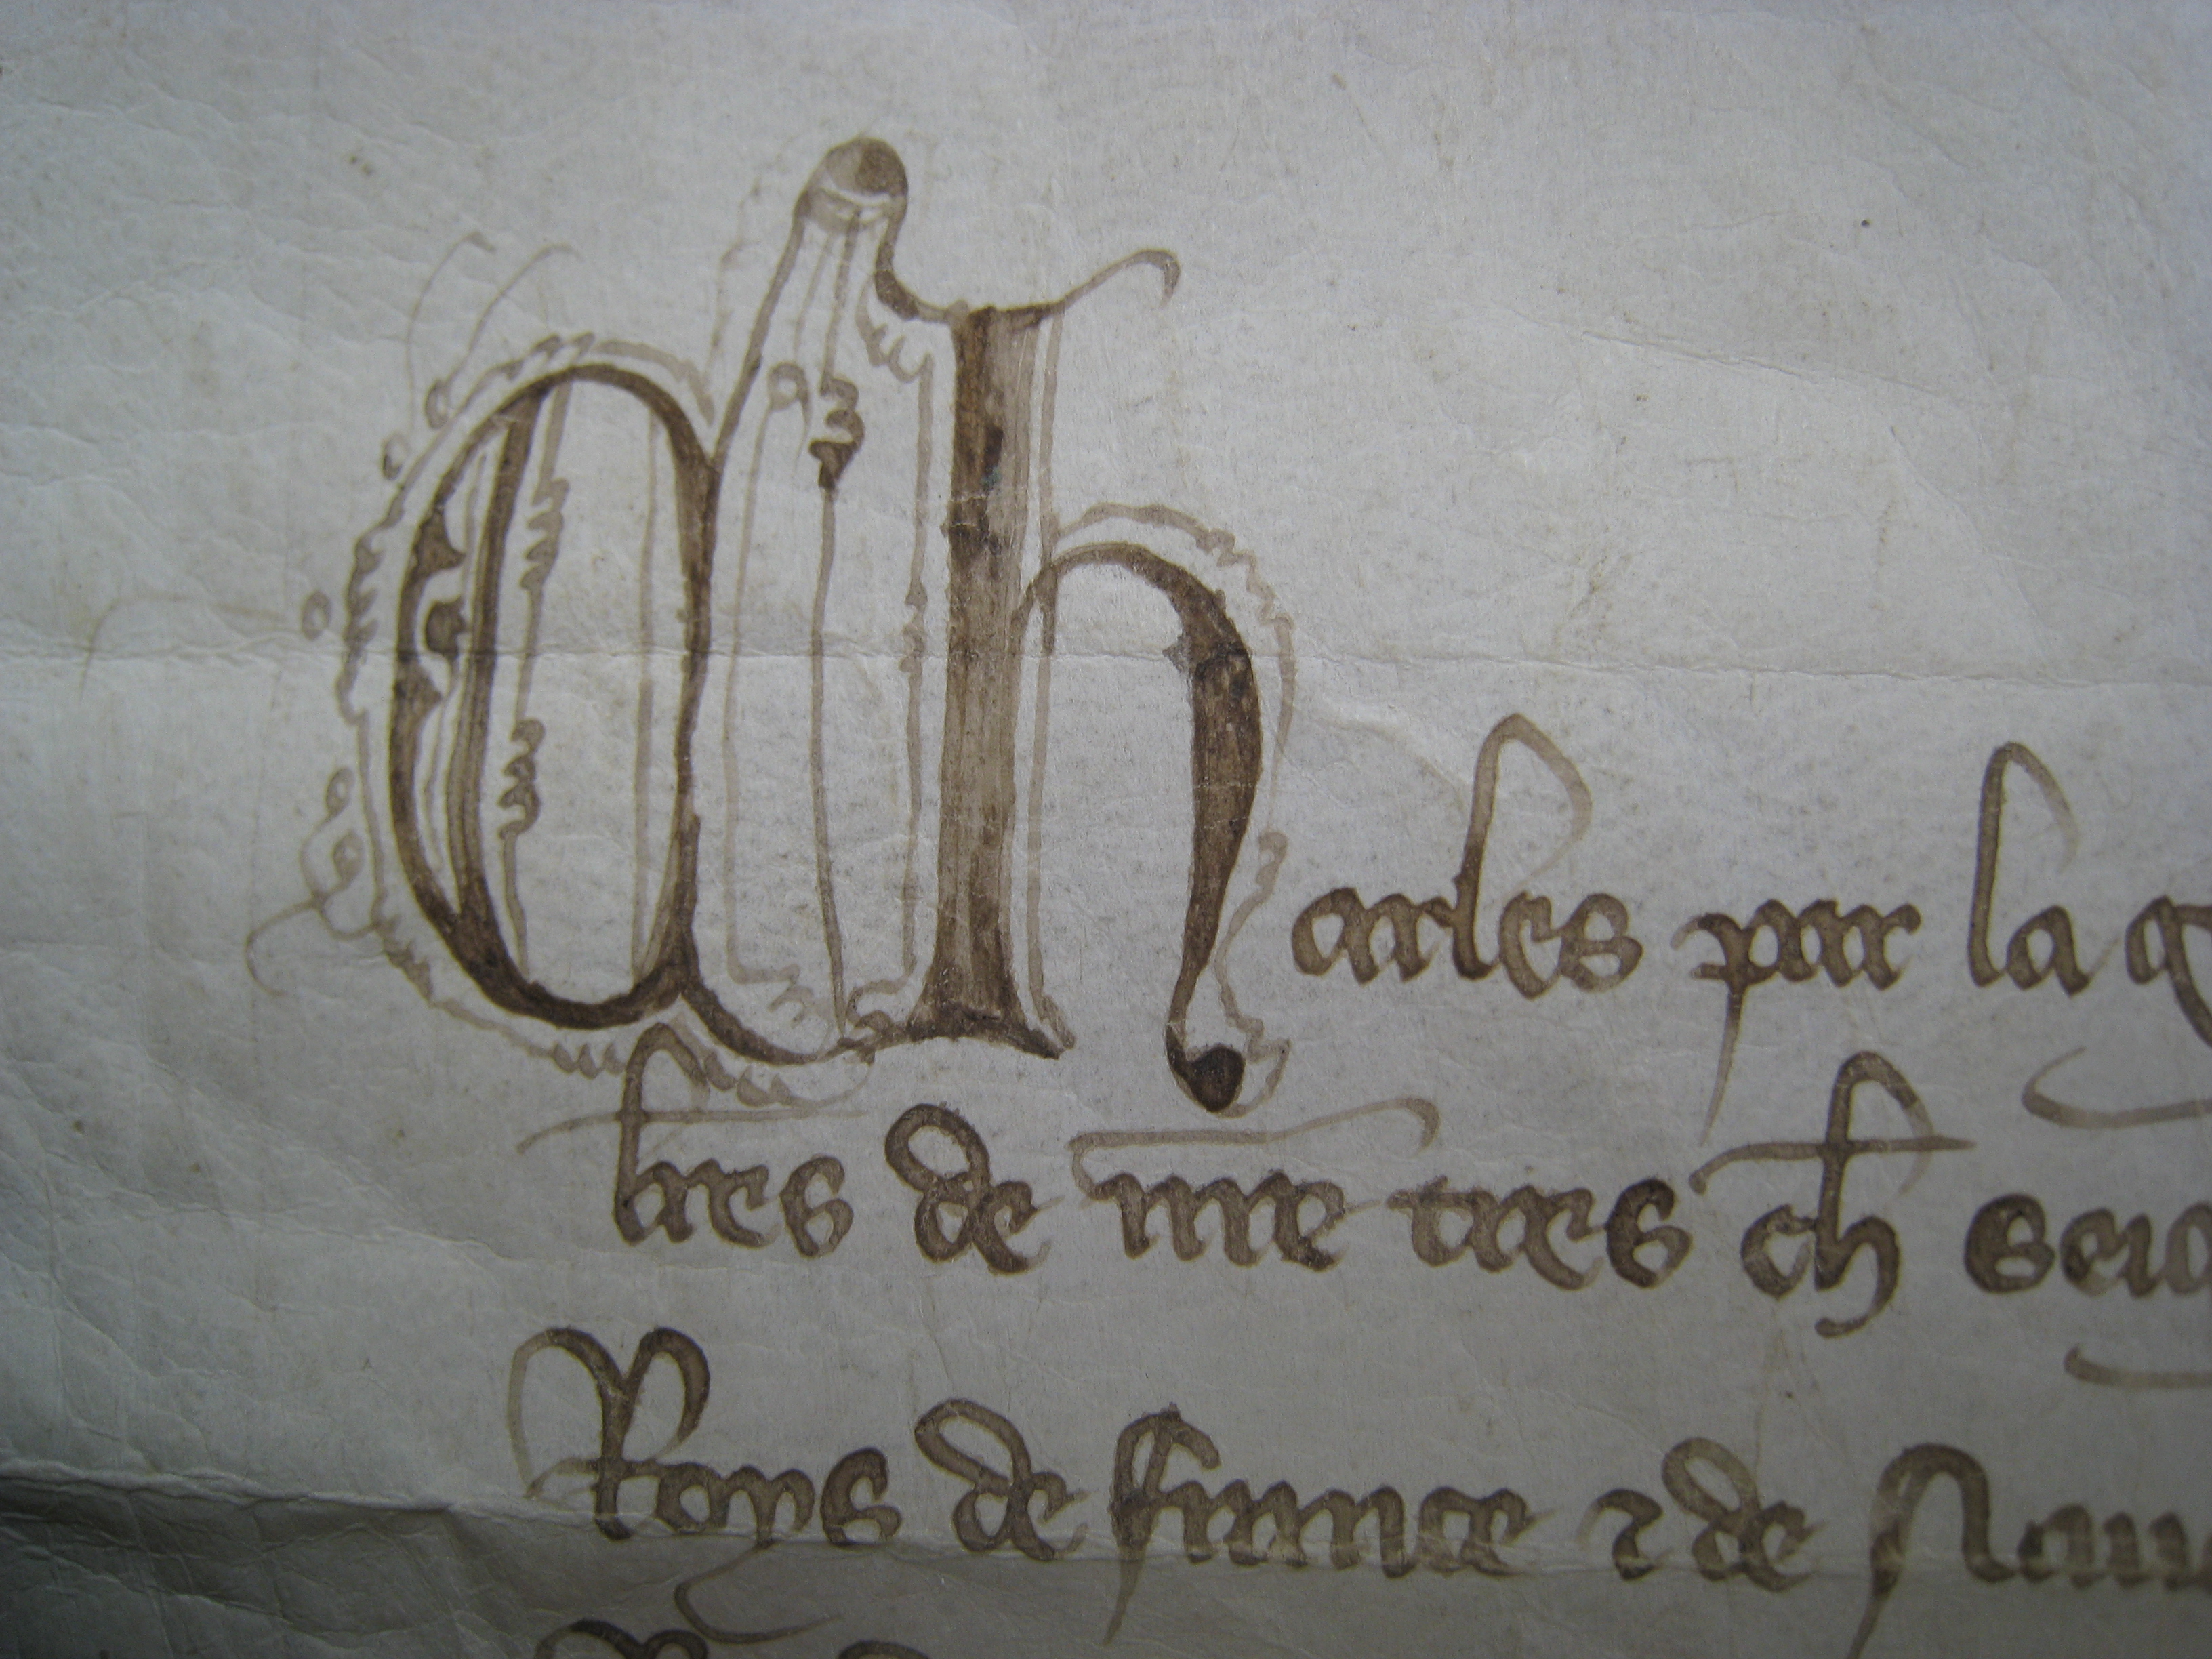 Charles par la g
lres de nre tres ch seig
Roys de france ⁊ de Nau